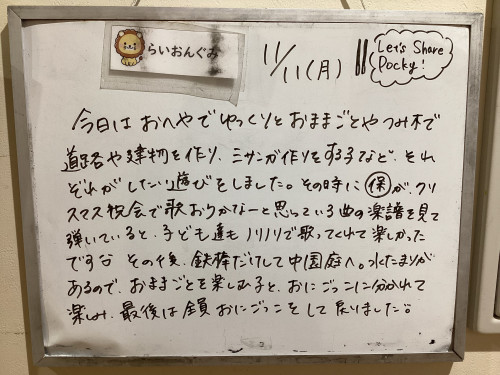 らいおんぐみ
11/11(月)
Let's Share
Pocky!
今日は おへやで ゆっくりと おままごとや つみ木で
道路や建物を作り、ミサンガ作りをする子など、それ
ぞれがしたい遊びをしました。その時に 保が、クリ
スマス祝会で歌おうかなーと思っている曲の楽譜を見て
弾いていると、子ども達も ノリノリで歌ってくれて楽しかった
です その後、鉄棒だけして中国庭へ。水たまりが
あるので、おままごとを楽しむ子と、おにごっこに分かれて
楽しみ、最後は全員 おにごっこをして戻りました。